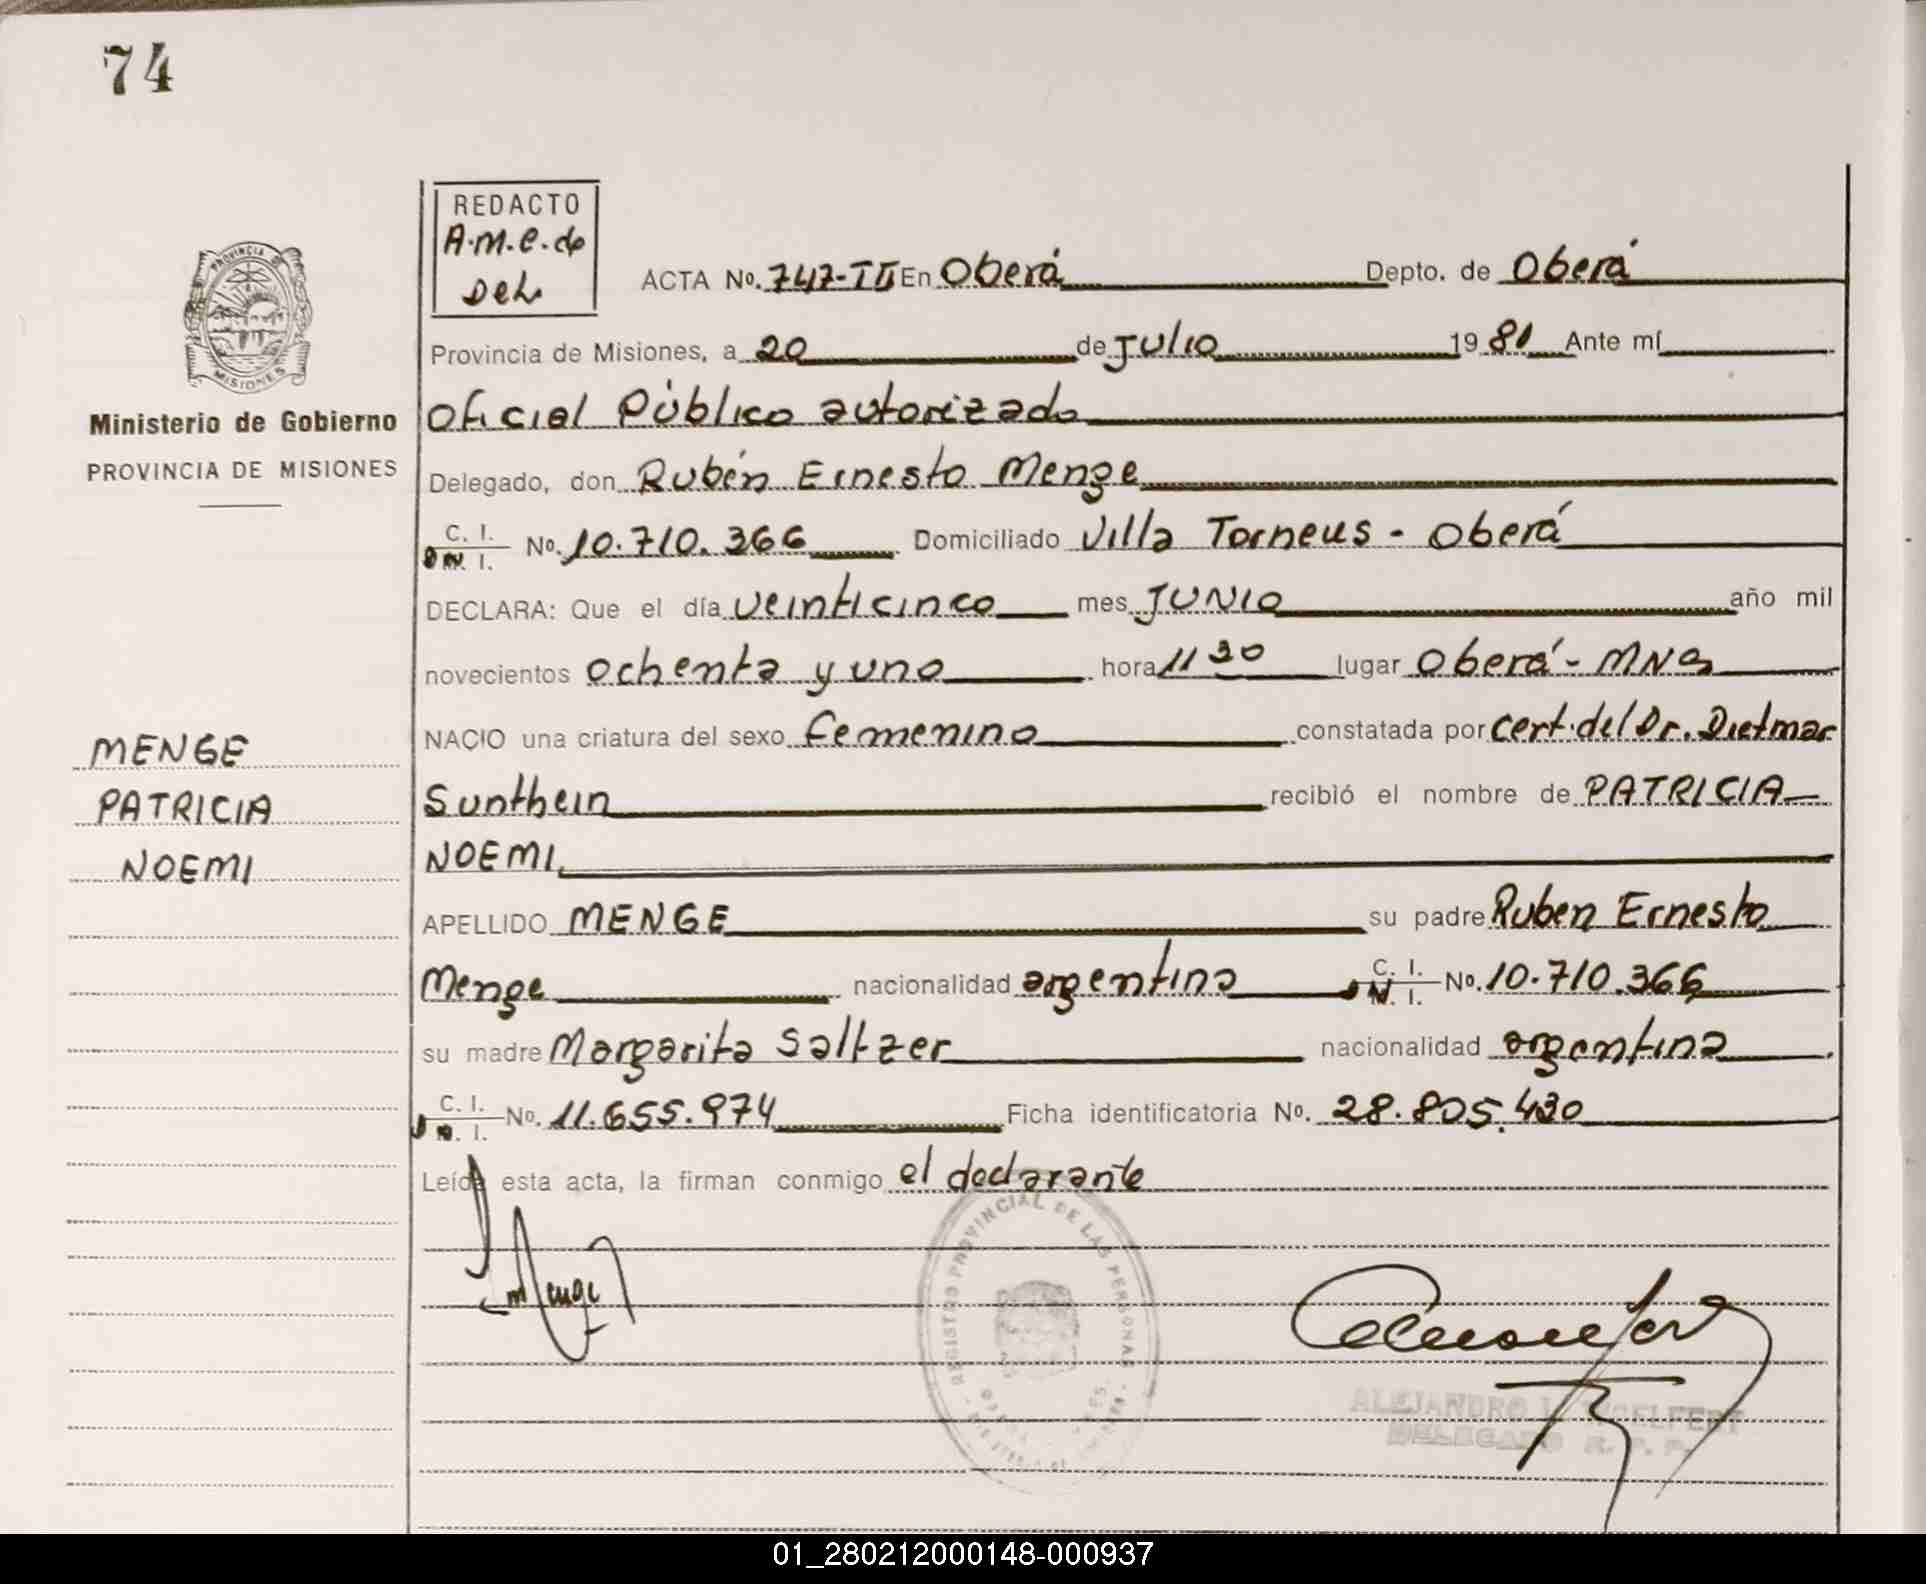 74
REDACTO
A.M.E. de
DEL
PROVINCIA DE
MISIONES
Ministerio de Gobierno
PROVINCIA DE MISIONES
ACTA No. 747-III En Oberá Depto. de Oberá
Provincia de Misiones, a 20 de Julio 1981 Ante mí
Oficial Público autorizado
Delegado, don Rubén Ernesto Menge
C. I. No. 10.710.366 Domiciliado Villa Torneus - Oberá
N. I.
DECLARA: Que el día veinticinco mes JUNIO año mil
novecientos ochenta y uno hora 11 30 lugar Oberá - MNS
NACIO una criatura del sexo femenino constatada por cert. del Dr. Dietmar
Sunthein recibió el nombre de PATRICIA
NOEMI
MENGE
PATRICIA
NOEMI
APELLIDO MENGE su padre Ruben Ernesto
Menge nacionalidad argentina C. I. No. 10.710.366
N. I.
su madre Margarita Saltzer nacionalidad argentina
C. I. No. 11.655.974 Ficha identificatoria No. 28.805.430
N. I.
Leída esta acta, la firman conmigo el declarante
Menge
REGISTRO PROVINCIAL DE LAS PERSONAS
ALEJANDRO
DELEGADO R. P. P.
01_280212000148-000937